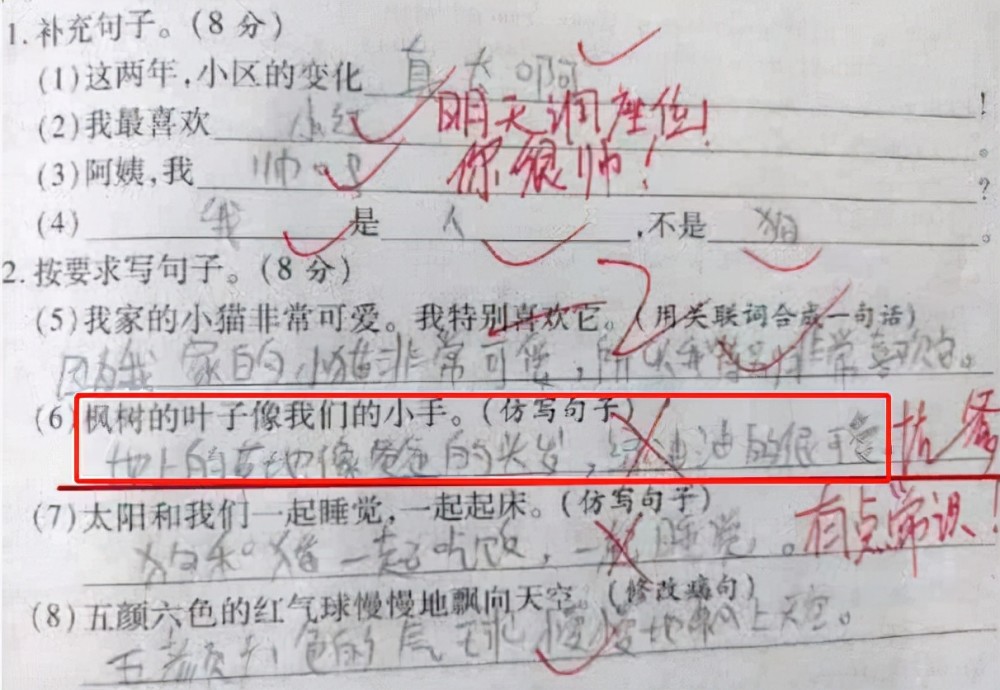 1.补充句子。(8分)
(1)这两年,小区的变化 真大啊 !
(2)我最喜欢 。
明天调座位!
(3)阿姨,我 帅吗 ?
你很帅!
(4) 我 是 人 ,不是 狗 。
2.按要求写句子。(8分)
(5)我家的小猫非常可爱。我特别喜欢它。(用关联词合成一句话)
因为我家的小猫非常可爱,所以我特别非常喜欢它。
(6)枫树的叶子像我们的小手。(仿写句子)
地上的草地像爸爸的头发,绿油油的很可爱
抗议
(7)太阳和我们一起睡觉,一起起床。(仿写句子)
狗和猫一起吃饭,一起睡觉。
有点常识!
(8)五颜六色的红气球慢慢地飘向天空。(修改病句)
五颜六色的气球慢慢地飘上天空。